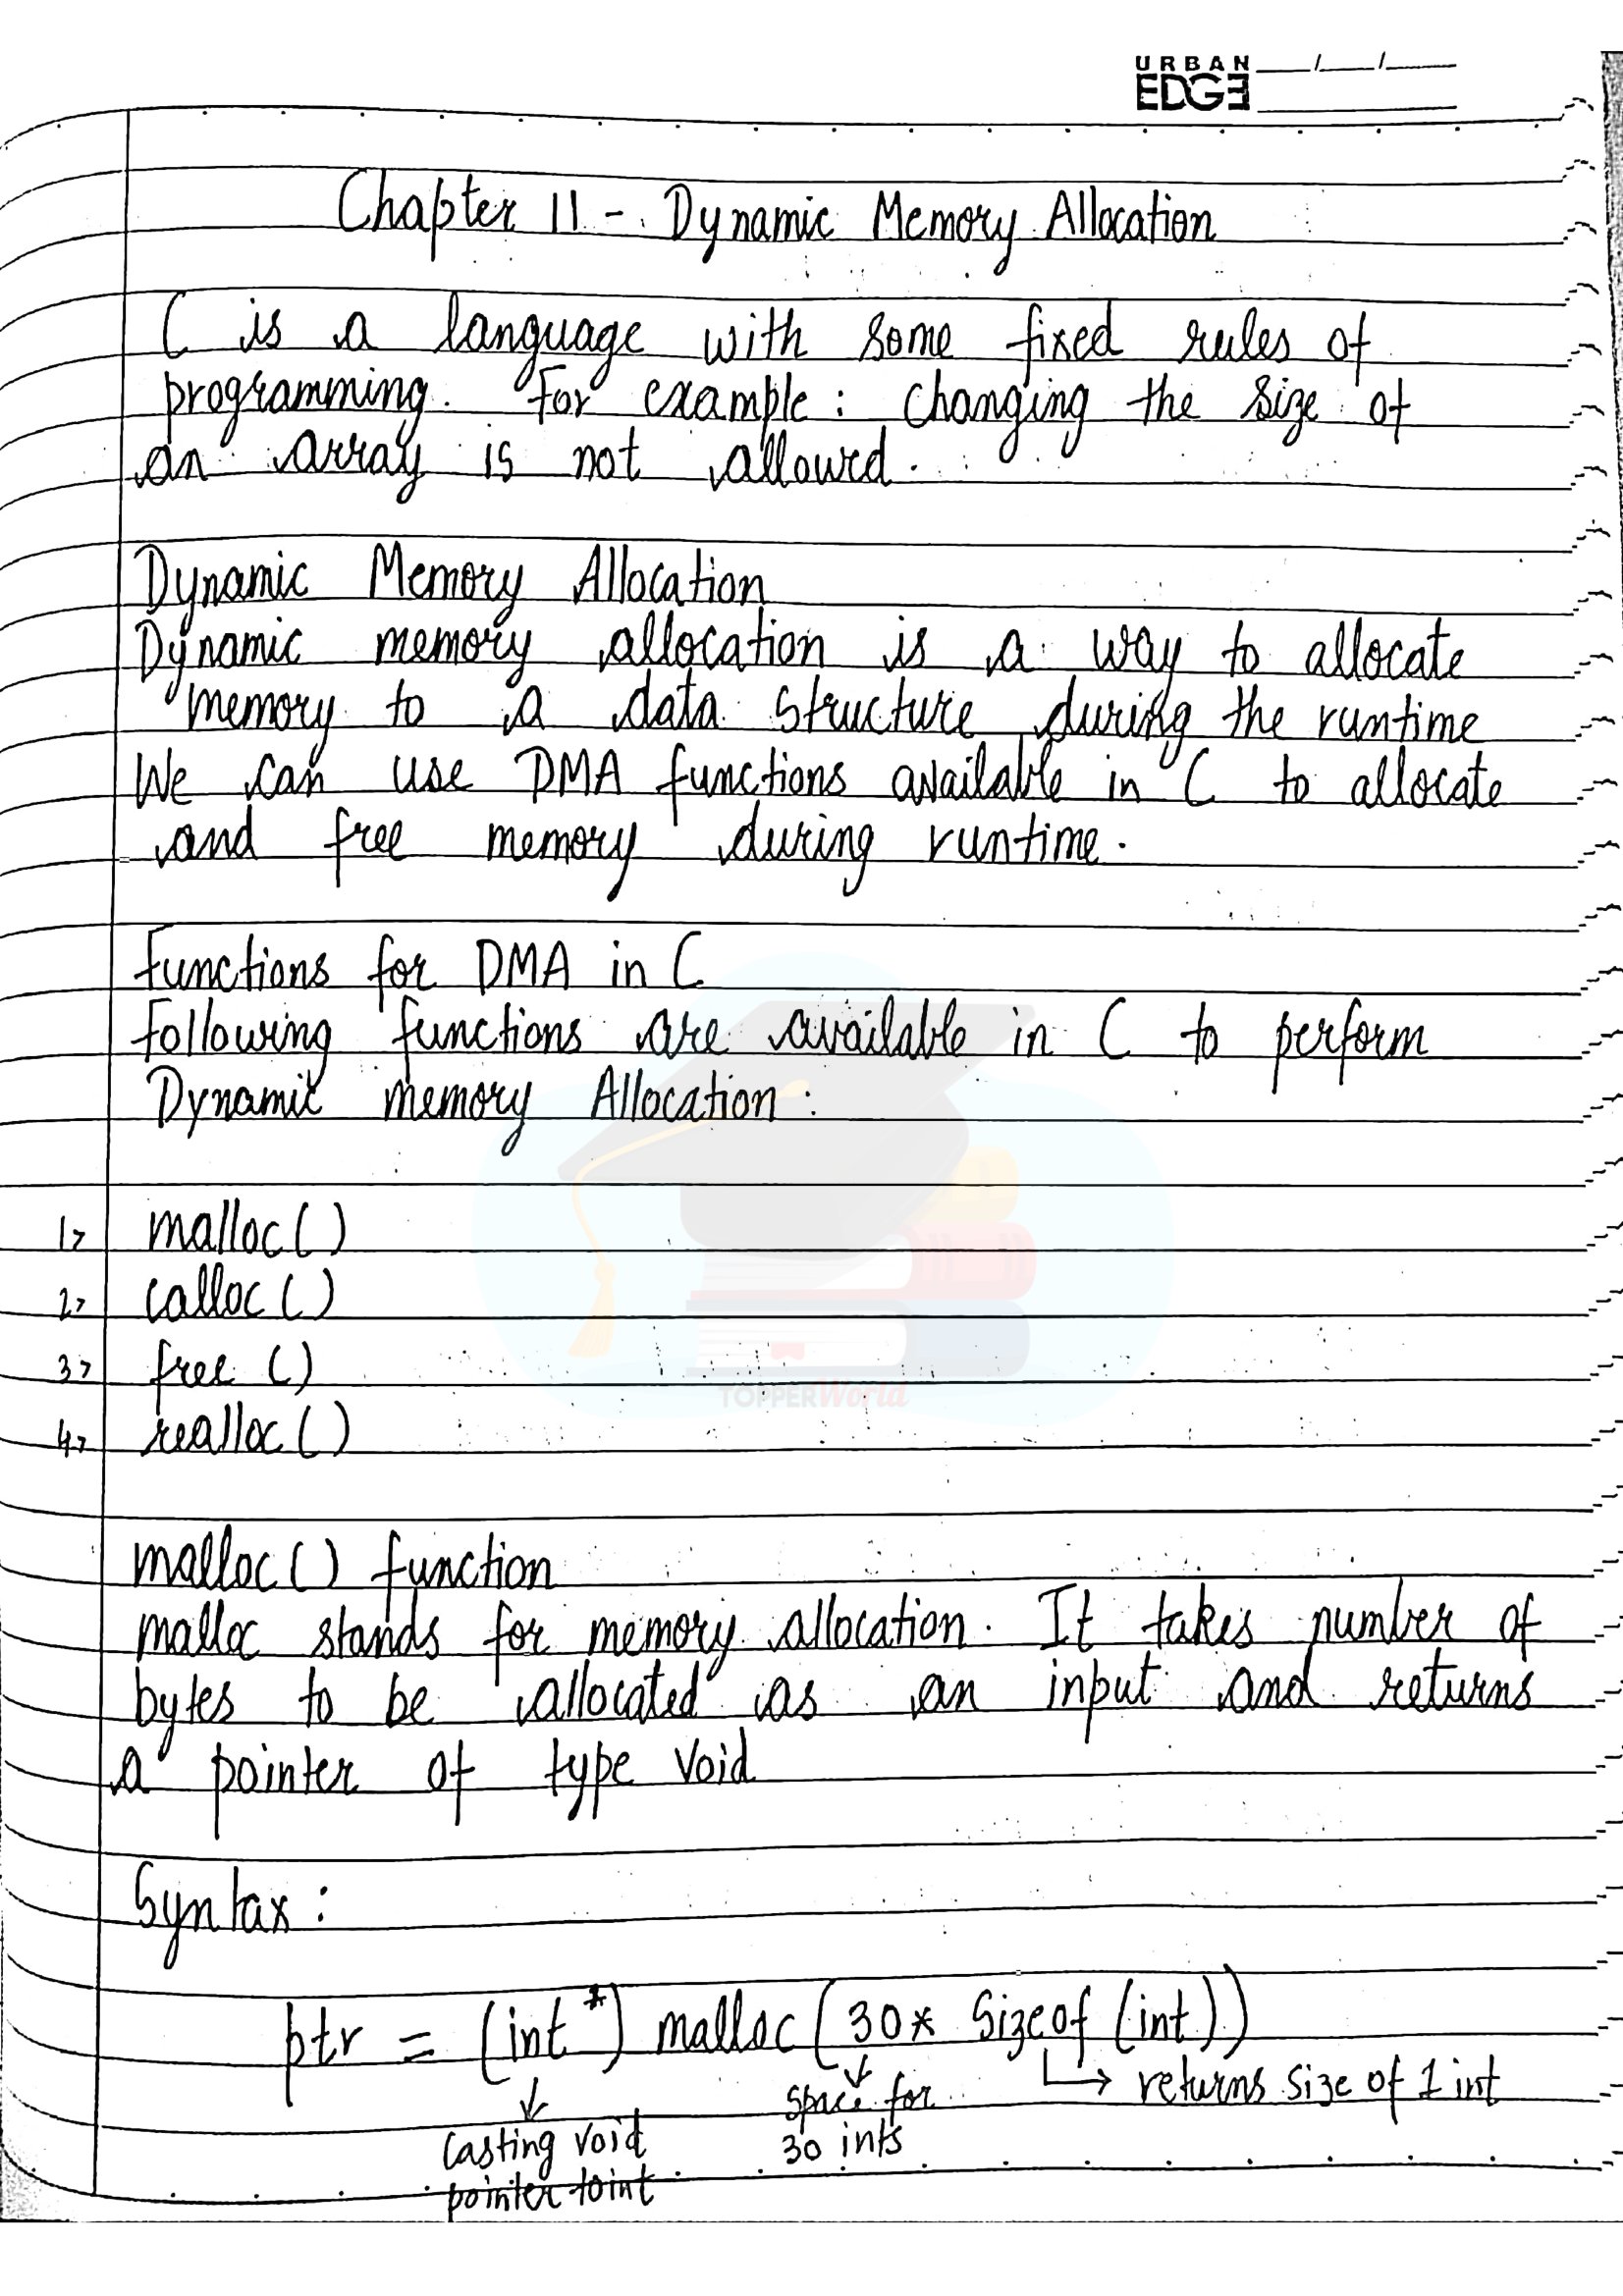 URBAN
EDGE
Chapter 11 - Dynamic Memory Allocation
C is a language with some fixed rules of
programming. For example : Changing the size of
an array is not allowed.
Dynamic Memory Allocation
Dynamic memory allocation is a way to allocate
memory to a data structure during the runtime
We can use DMA functions available in C to allocate
and free memory during runtime.
Functions for DMA in C
Following functions are available in C to perform
Dynamic memory Allocation :
1> malloc( )
2> calloc ( )
3> free ( )
4> realloc ( )
TOPPERWorld
malloc( ) function
malloc stands for memory allocation. It takes number of
bytes to be allocated as an input and returns
a pointer of type void
Syntax :
ptr = (int *) malloc (30 * Sizeof (int))
↓ casting void pointer to int
↓ space for 30 ints
↳ returns size of 1 int